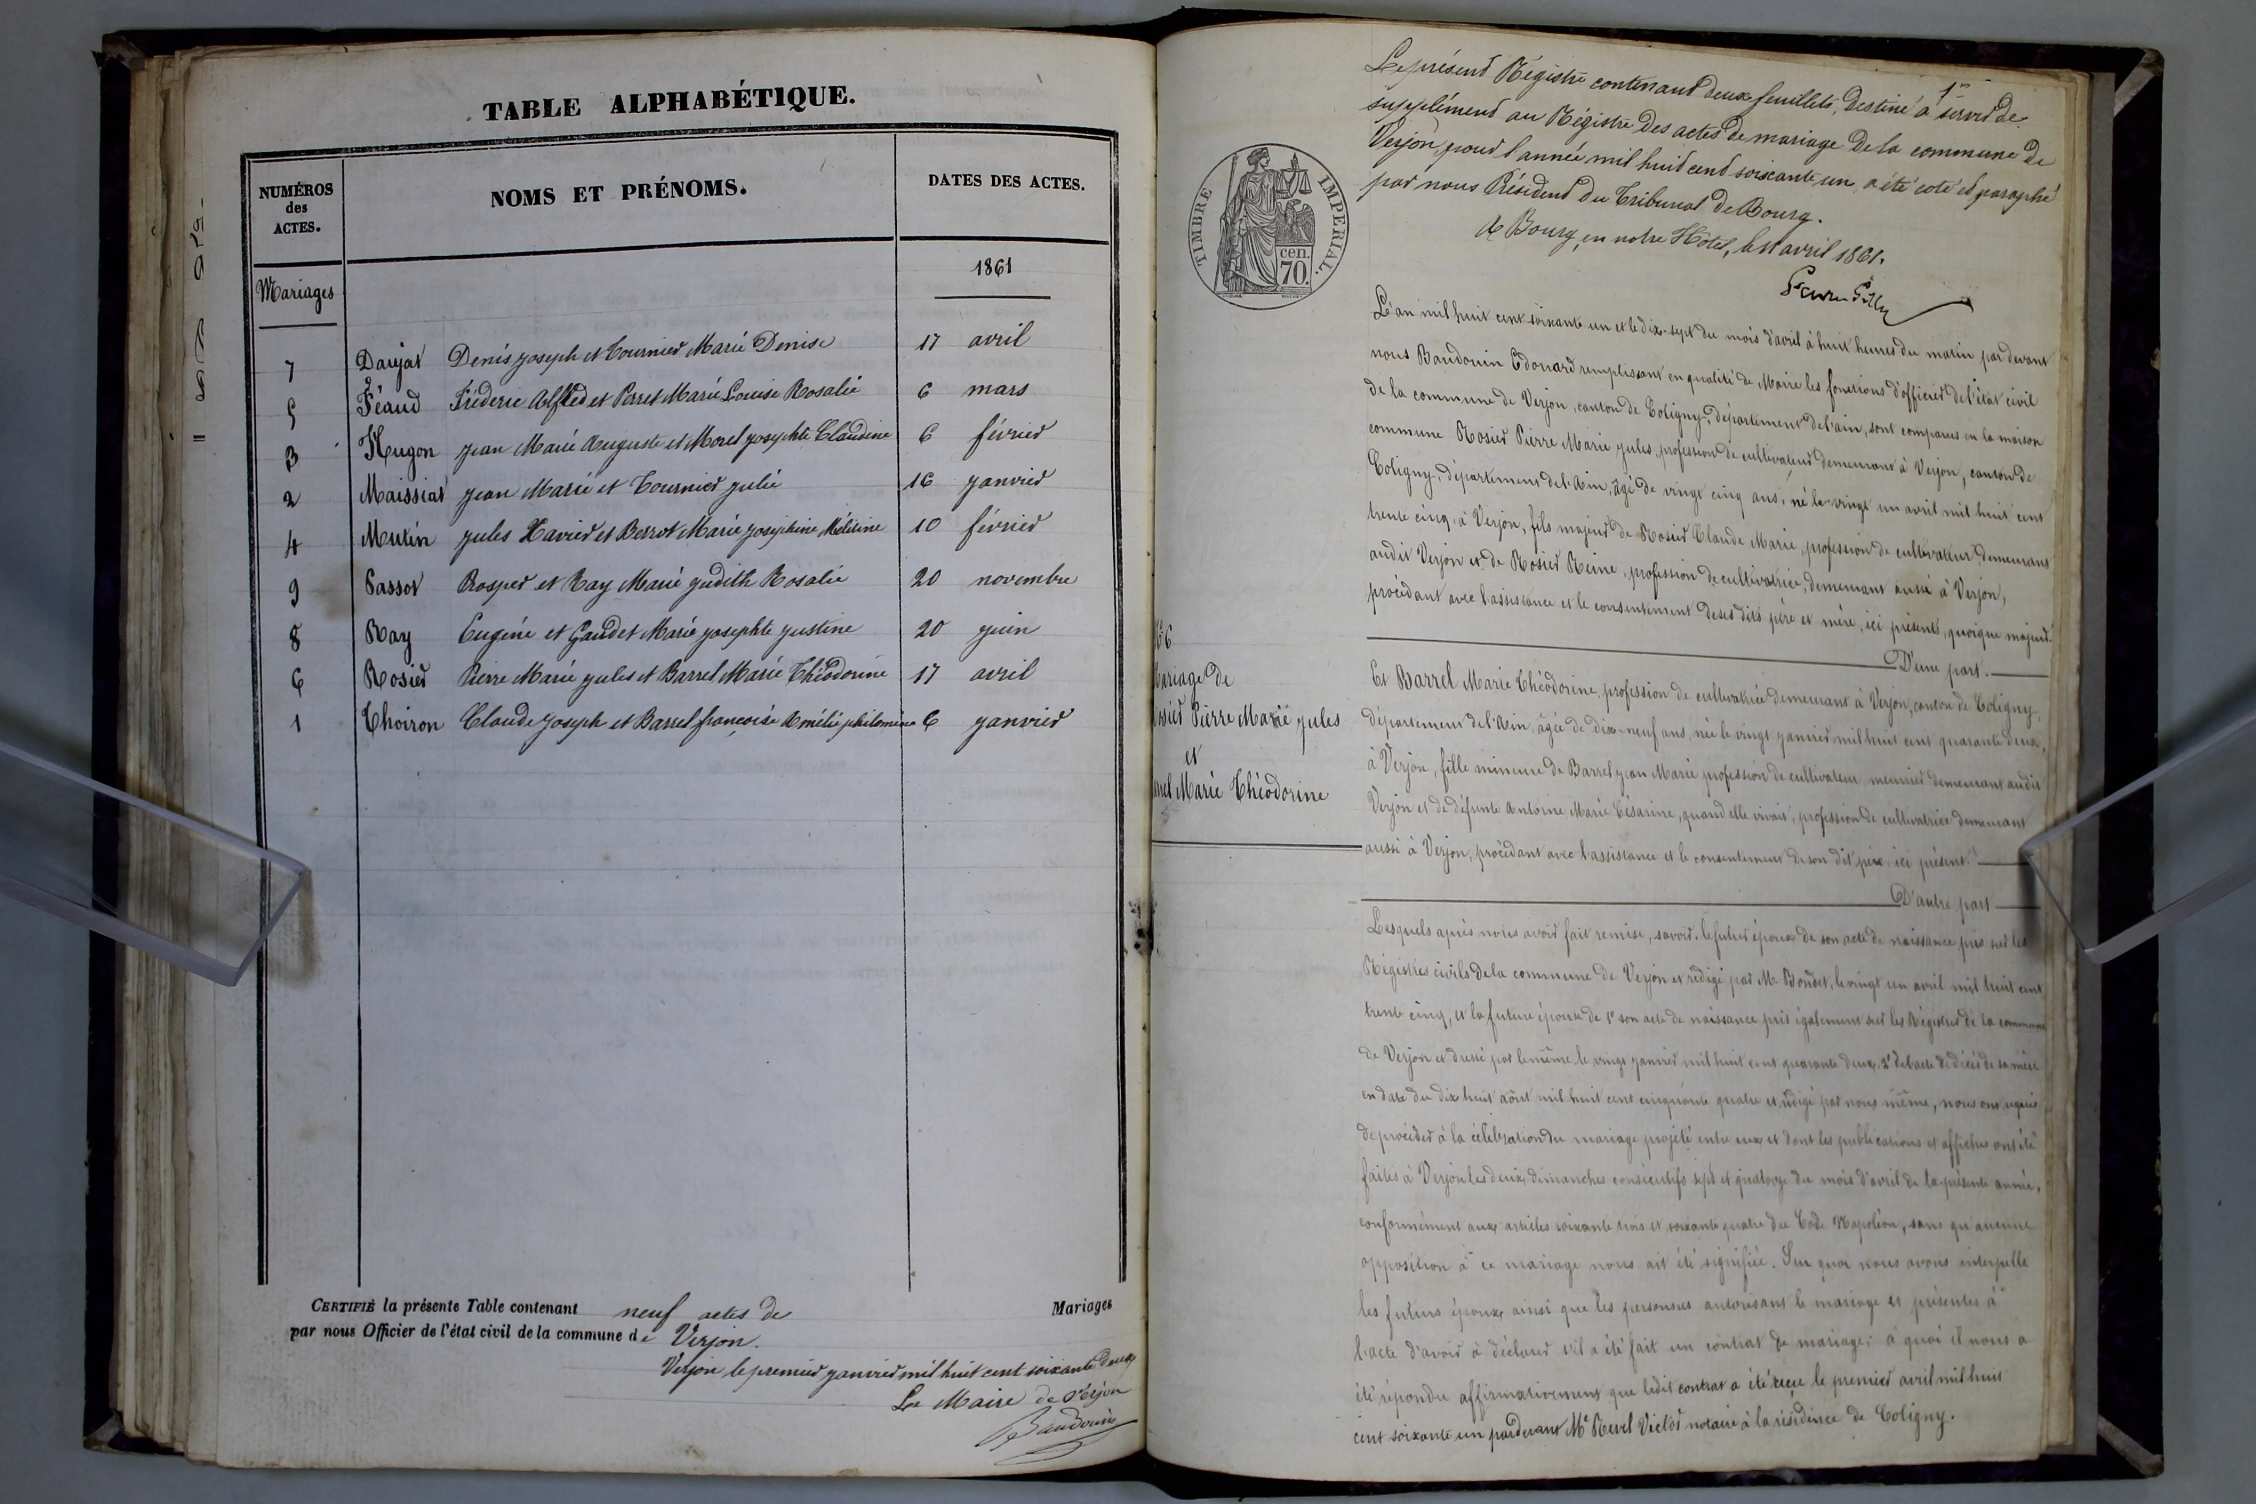 TABLE ALPHABÉTIQUE.
NUMÉROS des ACTES.
NOMS ET PRÉNOMS.
DATES DES ACTES.
Mariages
1861
7 Daujat Denis Joseph et Tournier Marie Denise 17 avril
5 Féaud Fréderic Alfred et Perret Marie Louise Rosalie 6 mars
3 Hugon Jean Marie Auguste et Morel Josephte Claudine 6 février
2 Maissiat Jean Marie et Tournier Julie 16 janvier
4 Mutin Jules Xavier et Berrot Marie Josephine Mélitine 10 février
9 Passot Prosper et Ray Marie Judith Rosalie 20 novembre
8 Ray Eugéne et Gaudet Marie Josephte Justine 20 juin
6 Rosier Pierre Marie Jules et Barrel Marie Théodorine 17 avril
1 Thoiron Claude Joseph et Barrel françoise Amélie philomène 6 janvier
CERTIFIÉ la présente Table contenant neuf actes de Mariages
par nous Officier de l'état civil de la commune de Verjon.
Verjon le premier janvier mil huit cent soixante deux
Le Maire de Verjon
Baudouin
1er
Le présent Régistre contenant deux feuillets, destiné à servir de
supplément au Régistre des actes de mariage de la commune de
Verjon, pour l'année mil huit cent soixante un, a été coté et paraphé
par nous Président du Tribunal de Bourg.
A Bourg, en notre Hôtel, le 11 avril 1861.
TIMBRE IMPÉRIAL.
cen.
70.
L'an mil huit cent soixante un et le dix-sept du mois d'avril à huit heures du matin par devant
nous Baudouin Edouard remplissant en qualité de Maire les fonctions d'officier de l'état civil
de la commune de Verjon, canton de Coligny, département de l'ain, sont comparus en la maison
commune Rosier Pierre Marie Jules, profession de cultivateur demeurant à Verjon, canton de
Coligny, département de l'Ain, âgé de vingt cinq ans, né le vingt un avril mil huit cent
trente cinq, à Verjon, fils majeur de Rosier Claude Marie, profession de cultivateur, demeurant
audit Verjon et de Rosier Reine, profession de cultivatrice, demeurant aussi à Verjon,
procédant avec l'assistance et le consentement de ses dits père et mère, ici présents, quoique majeur.
D'une part.
N° 6
Mariage de
Rosier Pierre Marie Jules
et
Barrel Marie Théodorine
Et Barrel Marie Théodorine, profession de cultivatrice demeurant à Verjon, canton de Coligny,
département de l'Ain, âgée de dix-neuf ans, née le vingt janvier mil huit cent quarante deux,
à Verjon, fille mineure de Barrel Jean Marie profession de cultivateur meunier demeurant audit
Verjon et de défunte Antoine Marie Césarine, quand elle vivait, profession de cultivatrice demeurant
aussi à Verjon, procédant avec l'assistance et le consentement de son dit père, ici présent.
D'autre part
Lesquels après nous avoir fait remise, savoir: le futur époux de son acte de naissance pris sur les
Régistres civils de la commune de Verjon et rédigé par Mr Bondet, le vingt un avril mil huit cent
trente cinq, et la future épouse de 1° son acte de naissance pris également sur les Régistres de la commune
de Verjon et dressé par le même le vingt janvier mil huit cent quarante deux, 2° de l'acte de décès de sa mère
en date du dix huit août mil huit cent cinquante quatre et rédigé par nous même, nous ont requis
de procéder à la célébration du mariage projeté entre eux et dont les publications et affiches ont été
faites à Verjon les deux dimanches consécutifs sept et quatorze du mois d'avril de la présente année,
conformément aux articles soixante trois et soixante quatre du Code Napoléon, sans qu'aucune
opposition à ce mariage nous ait été signifiée. Sur quoi nous avons interpellé
les futurs époux, ainsi que les personnes autorisant le mariage et présentes à
l'acte d'avoir à déclarer s'il a été fait un contrat de mariage; à quoi il nous a
été répondu affirmativement que ledit contrat a été reçu le premier avril mil huit
cent soixante un pardevant Me Revel Victor notaire à la résidence de Coligny.